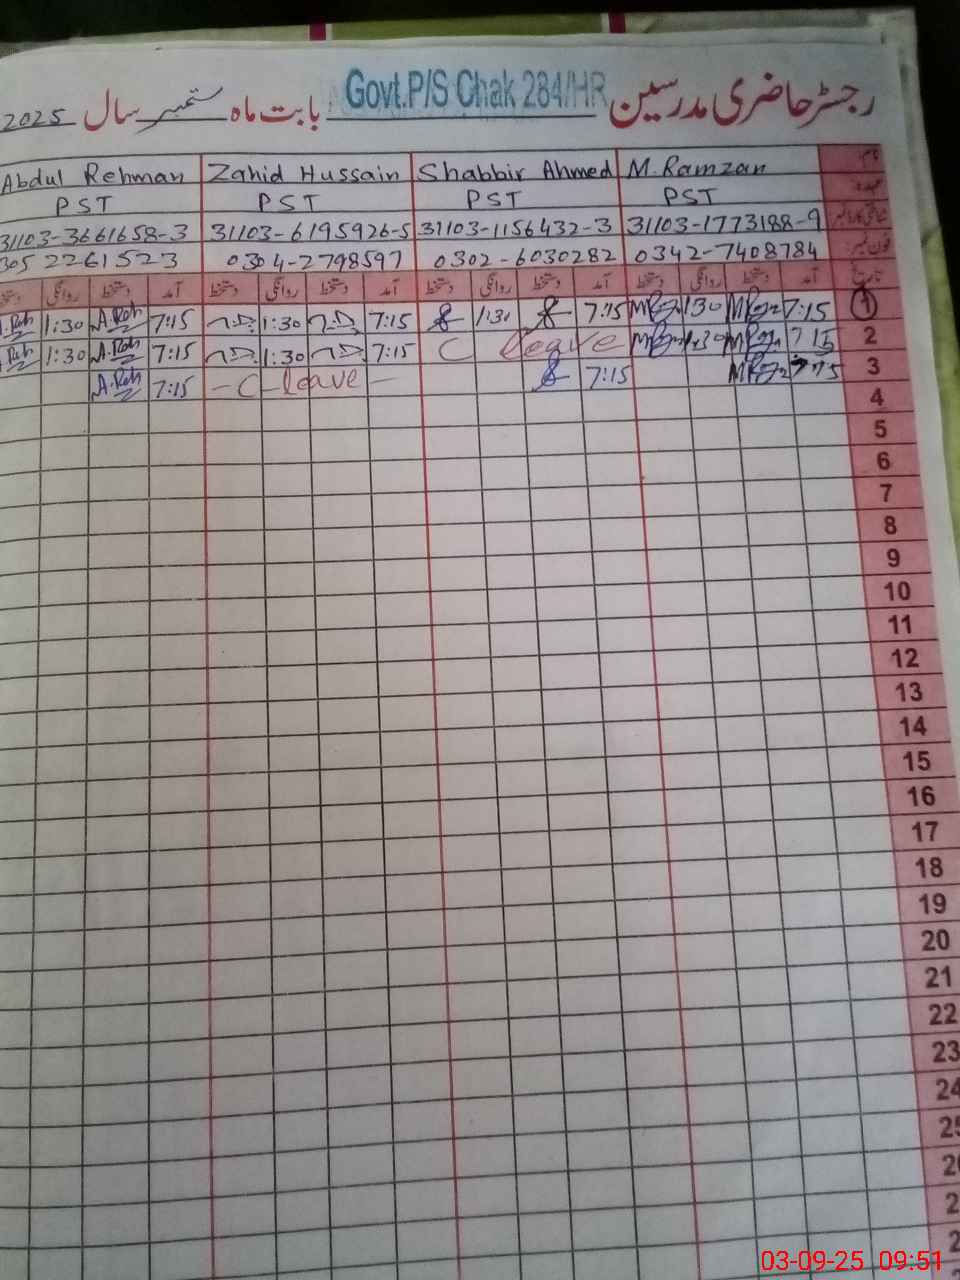 رجسٹر حاضری مدرسین Govt.P/S Chak 284/HR بابت ماہ ستمبر سال 2025
نام M.Ramzan Shabbir Ahmed Zahid Hussain Abdul Rehman
عہدہ PST PST PST PST
شناختی کارڈ نمبر 31103-1773188-9 31103-1156432-3 31103-6195926-5 31103-3661658-3
فون نمبر 0342-7408784 0302-6030282 0304-2798597 305 2261523
تاریخ آمد دستخط روانگی دستخط آمد دستخط روانگی دستخط آمد دستخط روانگی دستخط آمد دستخط روانگی دستخط
1 7:15 1:30 7:15 1:30 7:15 1:30 7:15 A.Reh 1:30 A.Reh
2 7 15 1:30 C leave 7:15 1:30 7:15 A.Reh 1:30 Reh
3 7:15 - C - leave - 7:15 A.Reh
4
5
6
7
8
9
10
11
12
13
14
15
16
17
18
19
20
21
22
23
24
03-09-25 09:51